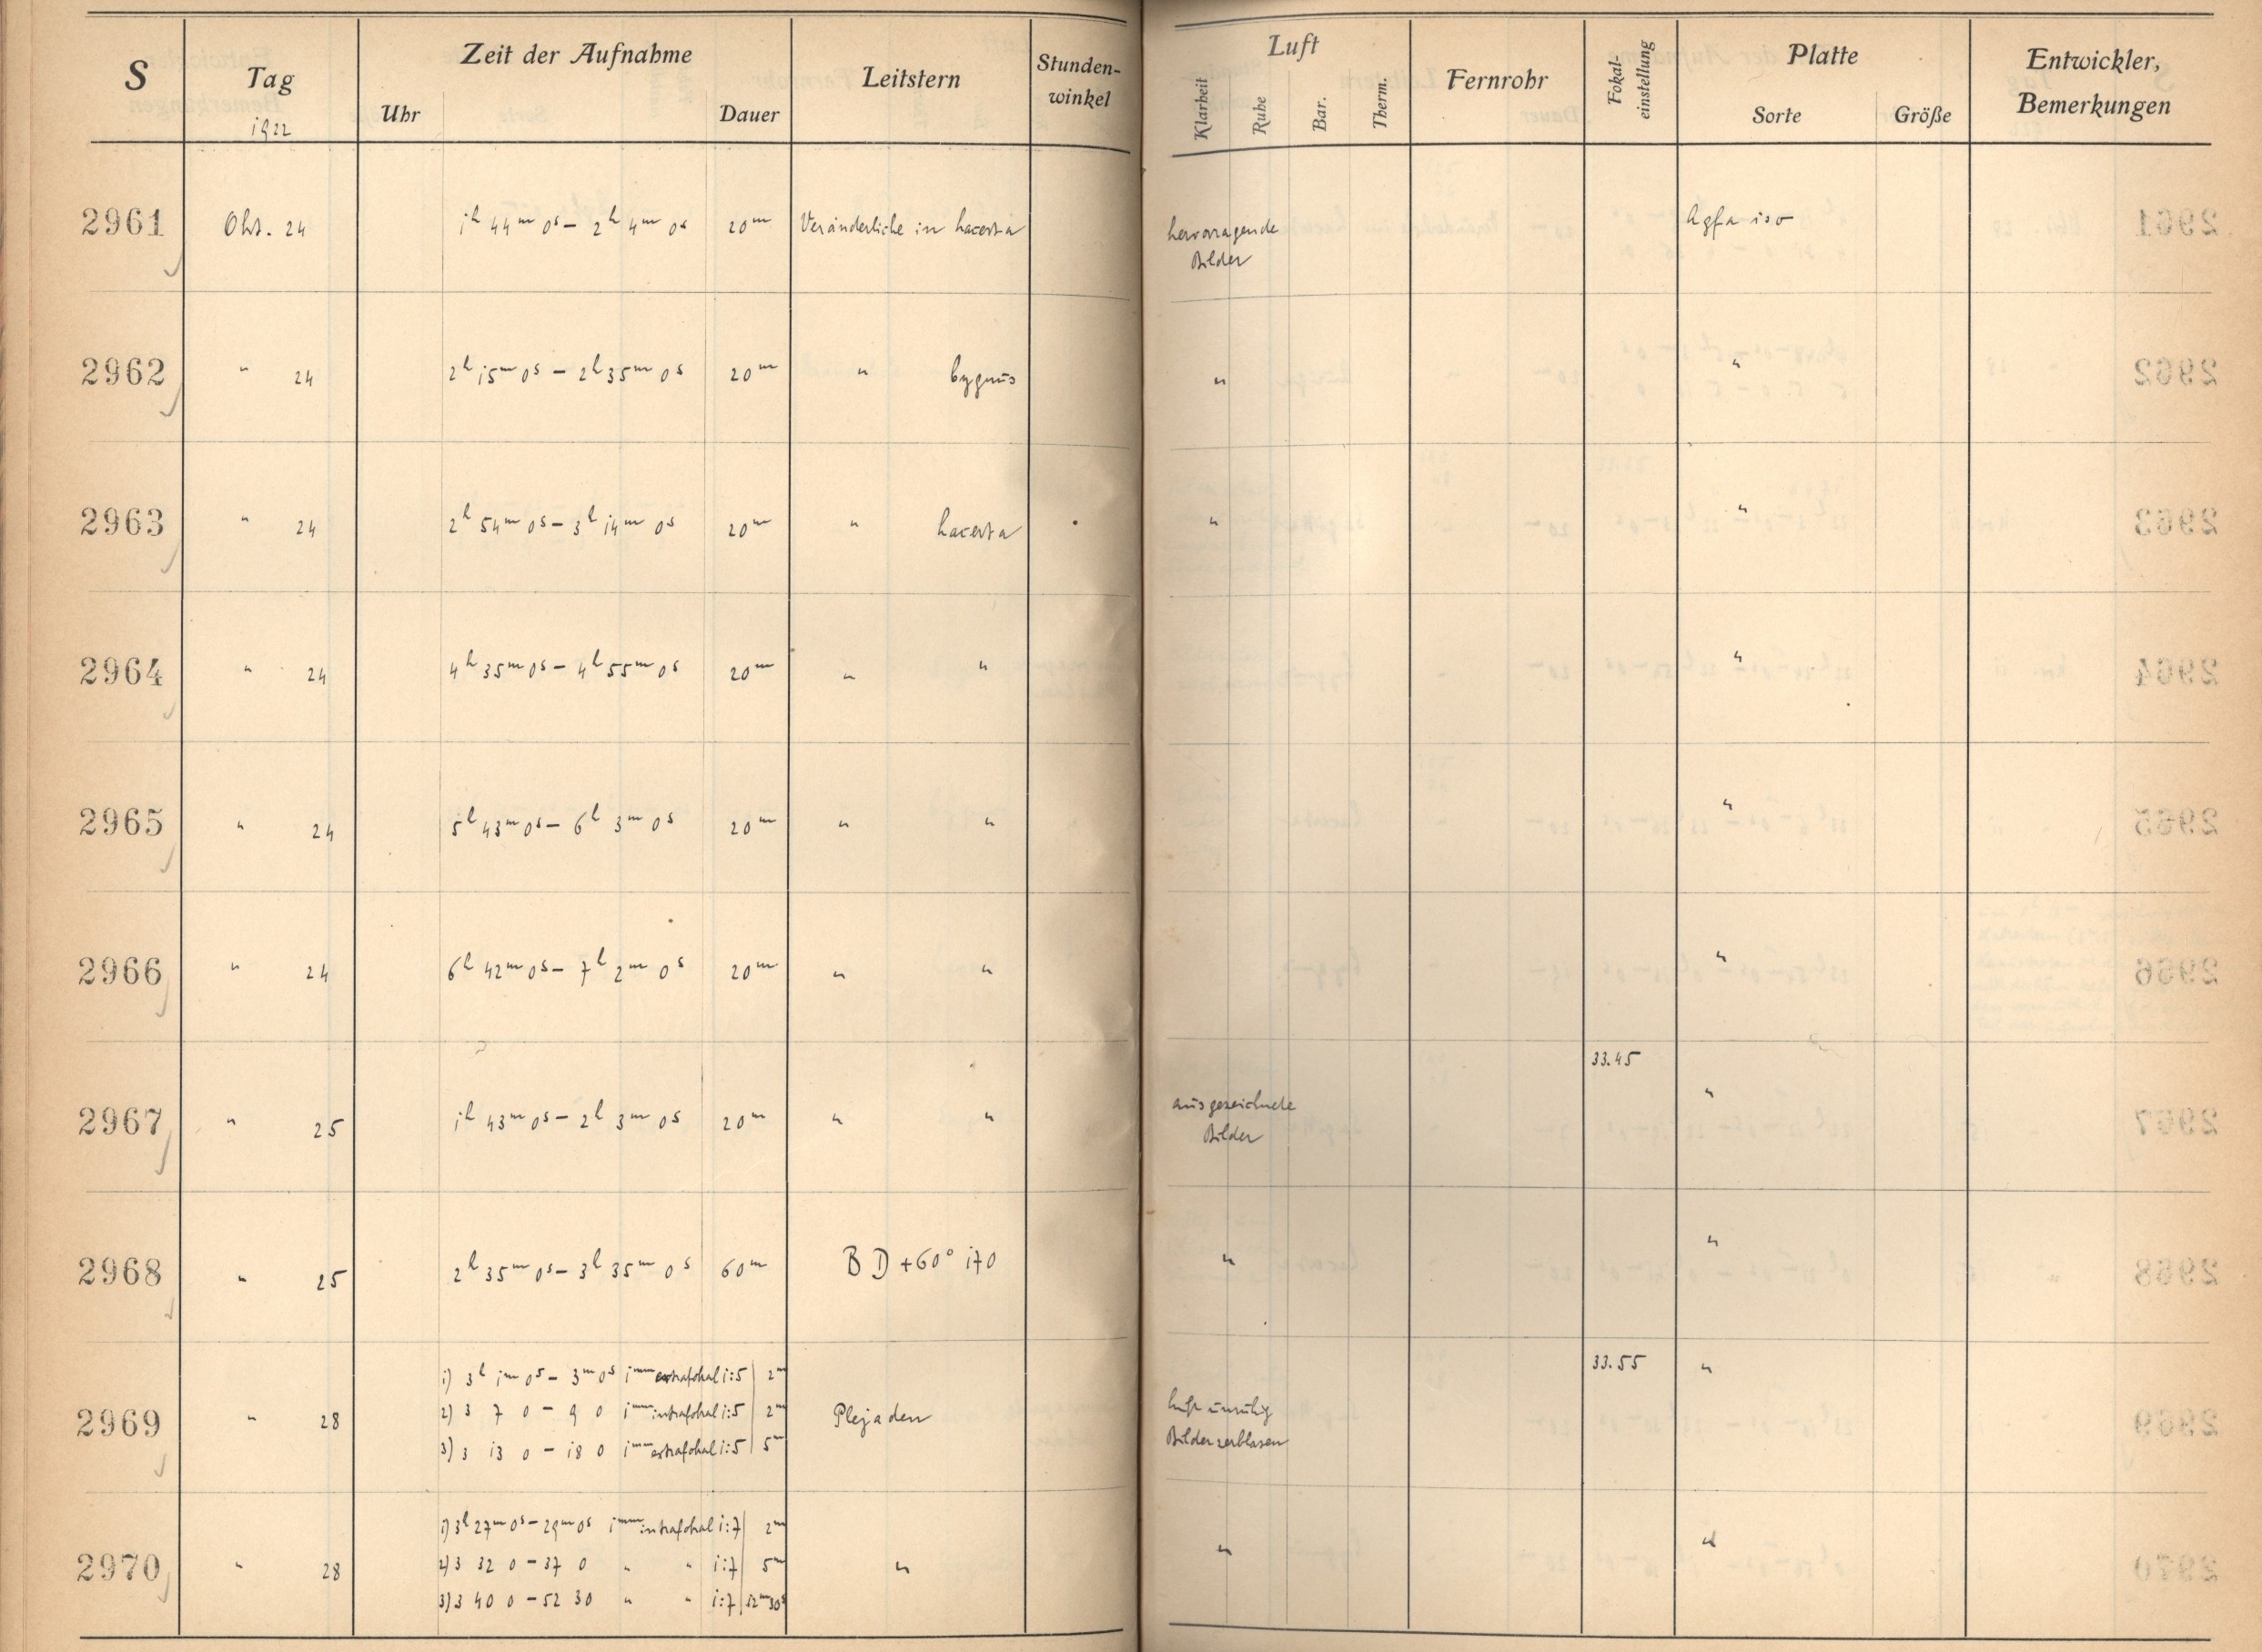 S Tag 1922 Zeit der Aufnahme Uhr Dauer Leitstern Stunden-winkel Luft Klarheit Ruhe Bar. Therm. Fernrohr Fokal-einstellung Platte Sorte Größe Entwickler, Bemerkungen
2961 Okt. 24 1h 44m 0s – 2h 4m 0s 20m Veränderliche in Lacerta hervorragende Bilder Agfa iso
2962 " 24 2h 15m 0s – 2h 35m 0s 20m " Cygnus " "
2963 " 24 2h 54m 0s – 3h 14m 0s 20m " Lacerta " "
2964 " 24 4h 35m 0s – 4h 55m 0s 20m " " "
2965 " 24 5h 43m 0s – 6h 3m 0s 20m " " "
2966 " 24 6h 42m 0s – 7h 2m 0s 20m " " "
2967 " 25 1h 43m 0s – 2h 3m 0s 20m " " ausgezeichnete Bilder 33.45 "
2968 " 25 2h 35m 0s – 3h 35m 0s 60m BD +60° 170 " "
2969 " 28 Plejaden Luft unruhig Bilder zerblasen 33.55 "
1) 3h 1m 0s – 3m 0s 1mm extrafokal 1:5 2m
2) 3 7 0 – 9 0 1mm intrafokal 1:5 2m
3) 3 13 0 – 18 0 1mm extrafokal 1:5 5m
2970 " 28 " " "
1) 3h 27m 0s – 29m 0s 1mm intrafokal 1:7 2m
2) 3 32 0 – 37 0 " " 1:7 5m
3) 3 40 0 – 52 30 " " 1:7 12m 30s